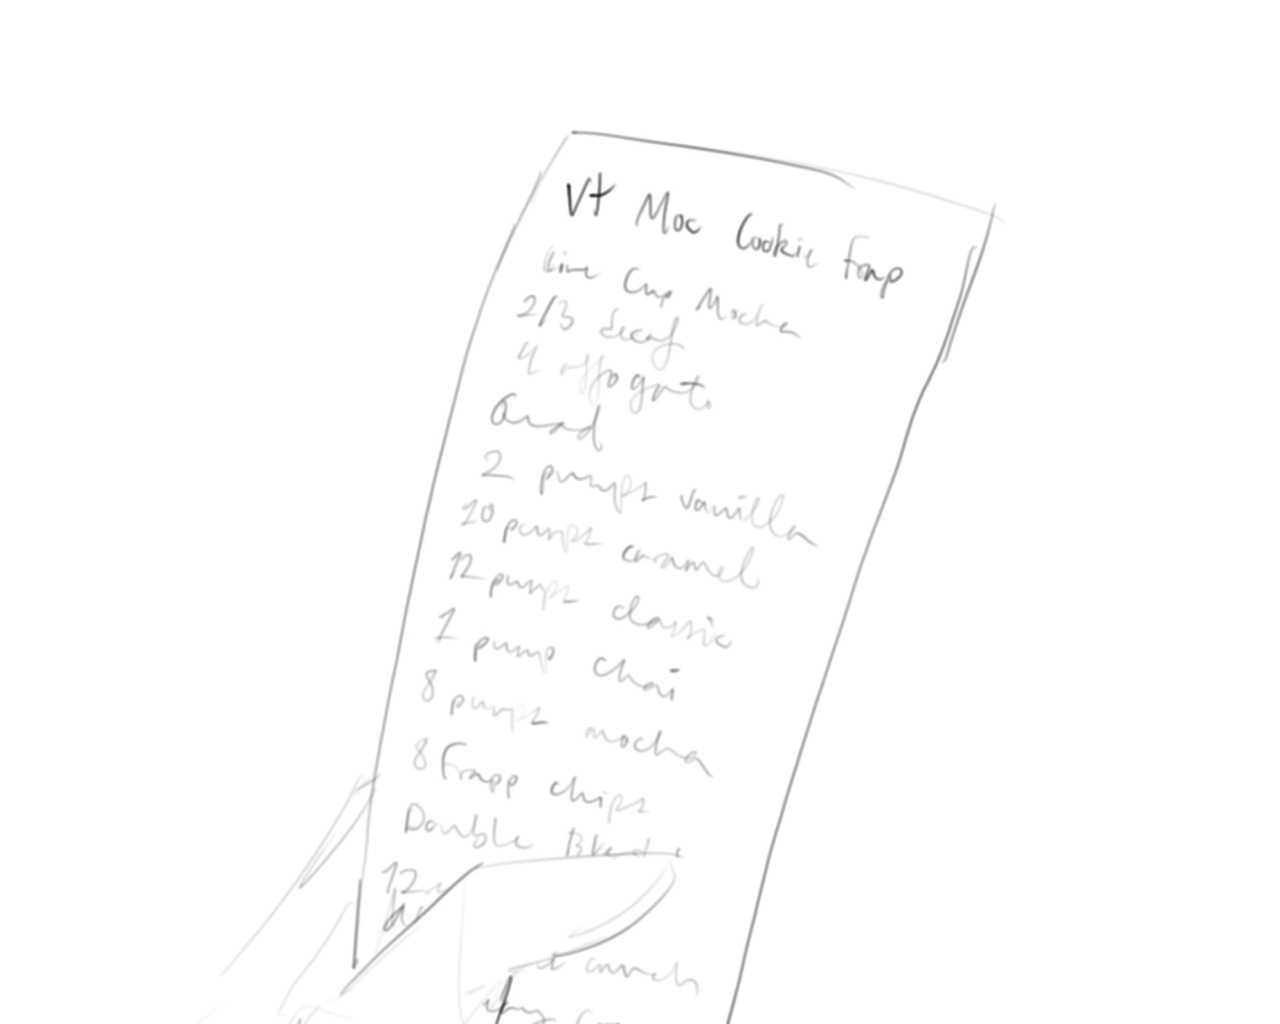 Vt Moc Cookie Frap
Line Cup Mocha
2/3 decaf
4 affogato
Quad
2 pumps vanilla
10 pumps caramel
12 pumps classic
1 pump chai
8 pumps mocha
8 Frapp chips
Double Blend
12
crunch